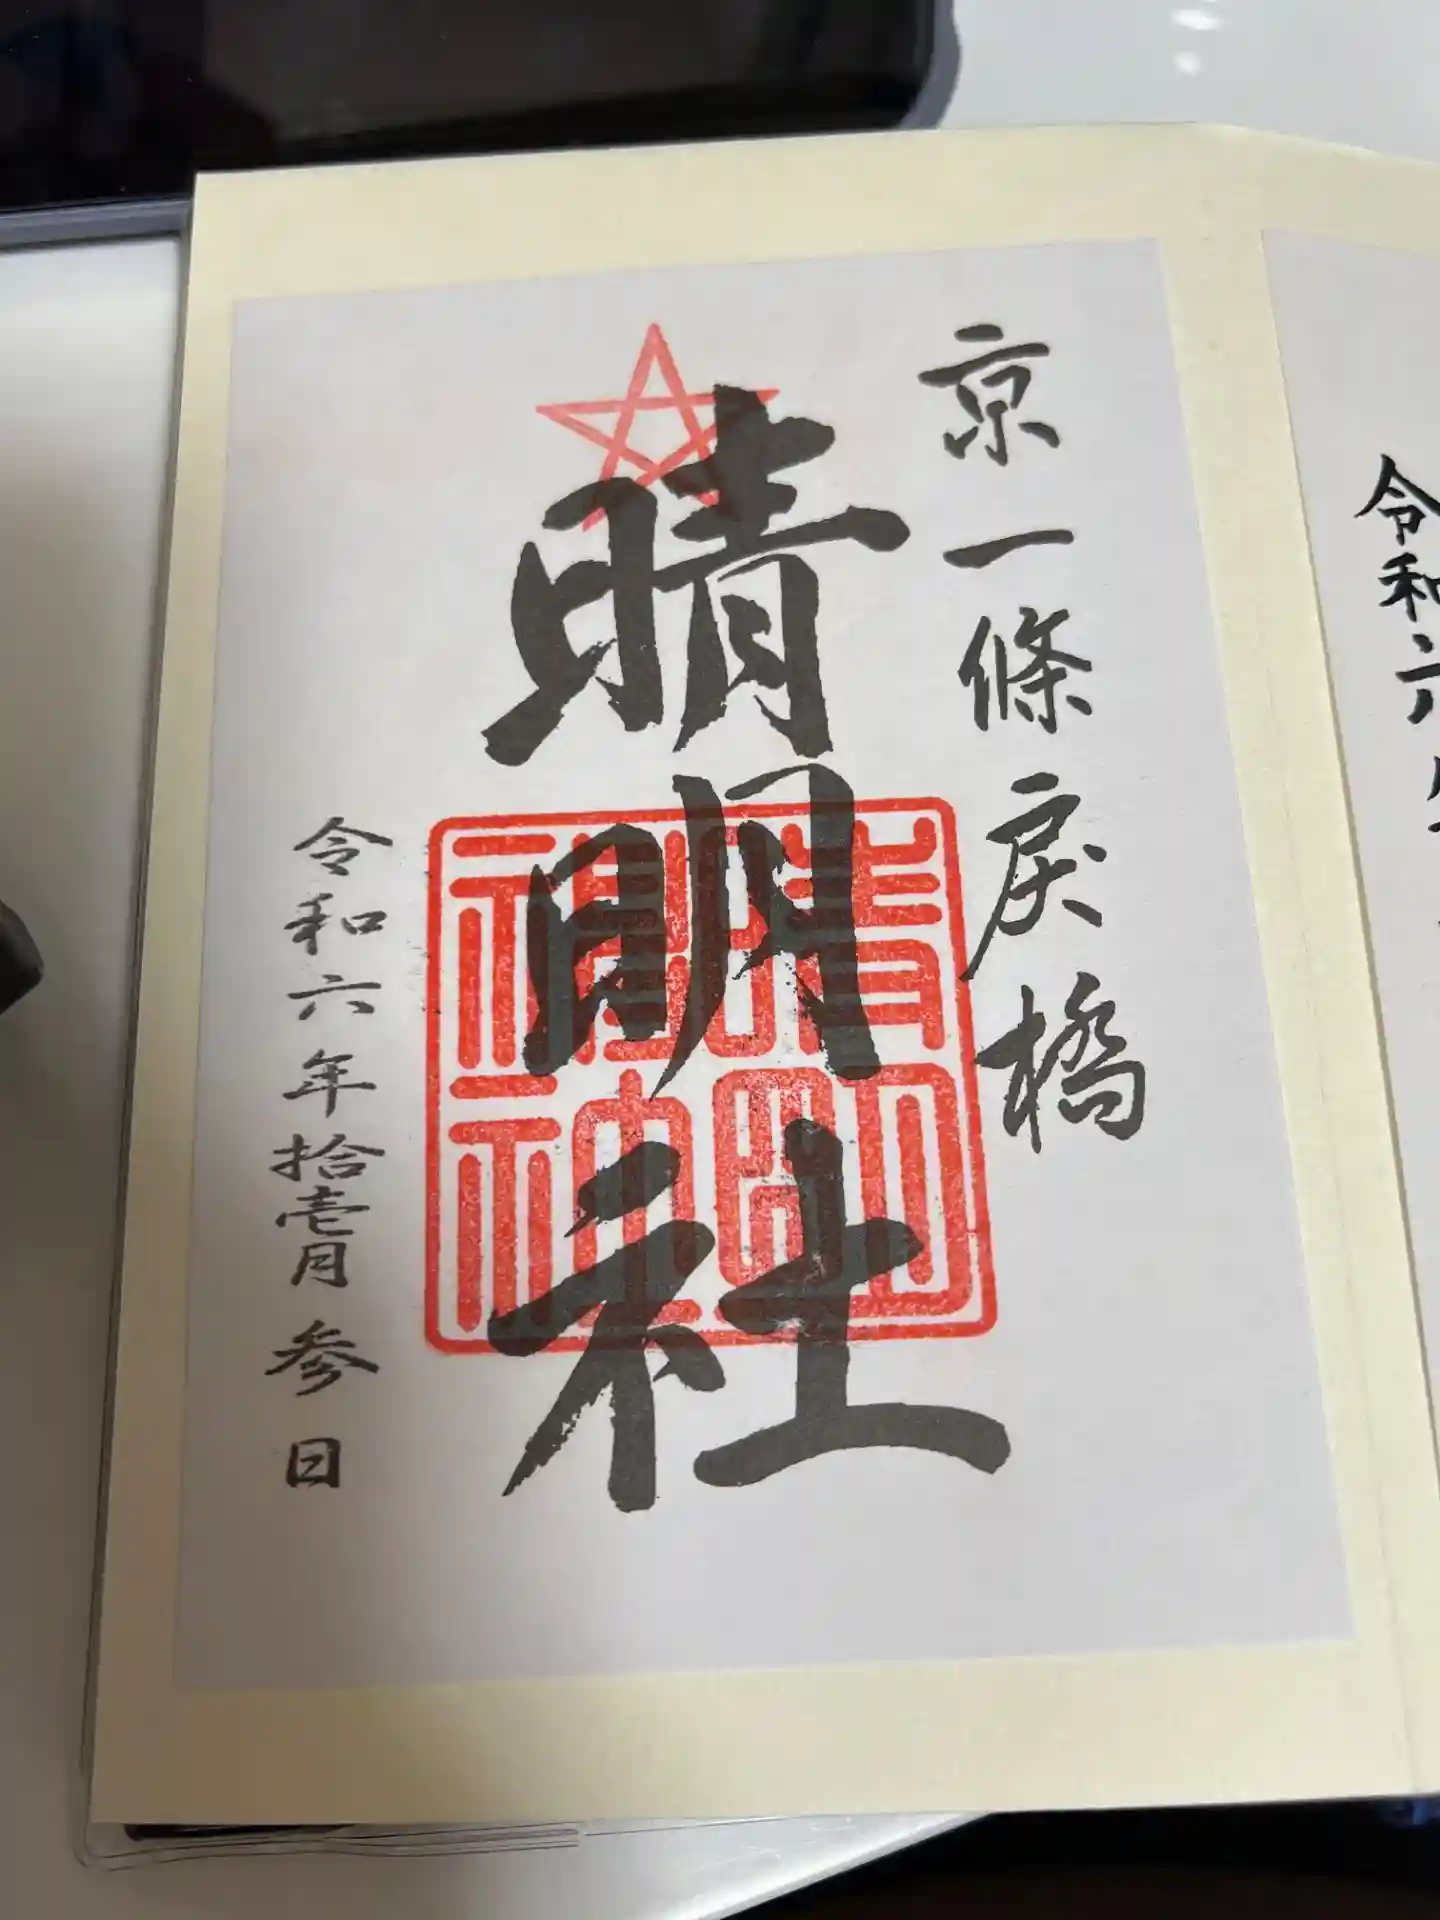 京一條戻橋
晴明社
晴明
神社
令和六年拾壱月参日
令和六年